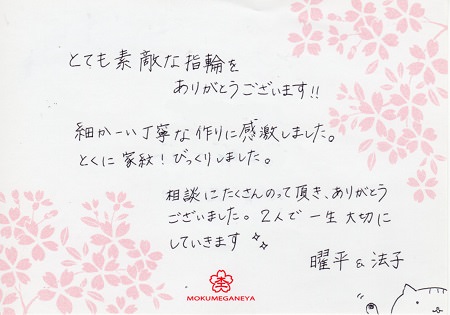 とても素敵な指輪を
ありがとうございます!!
細かーい丁寧な作りに感激しました。
とくに家紋!びっくりしました。
相談にたくさんのって頂き、ありがとう
ございました。2人で一生大切に
していきます
曜平&法子
MOKUMEGANEYA